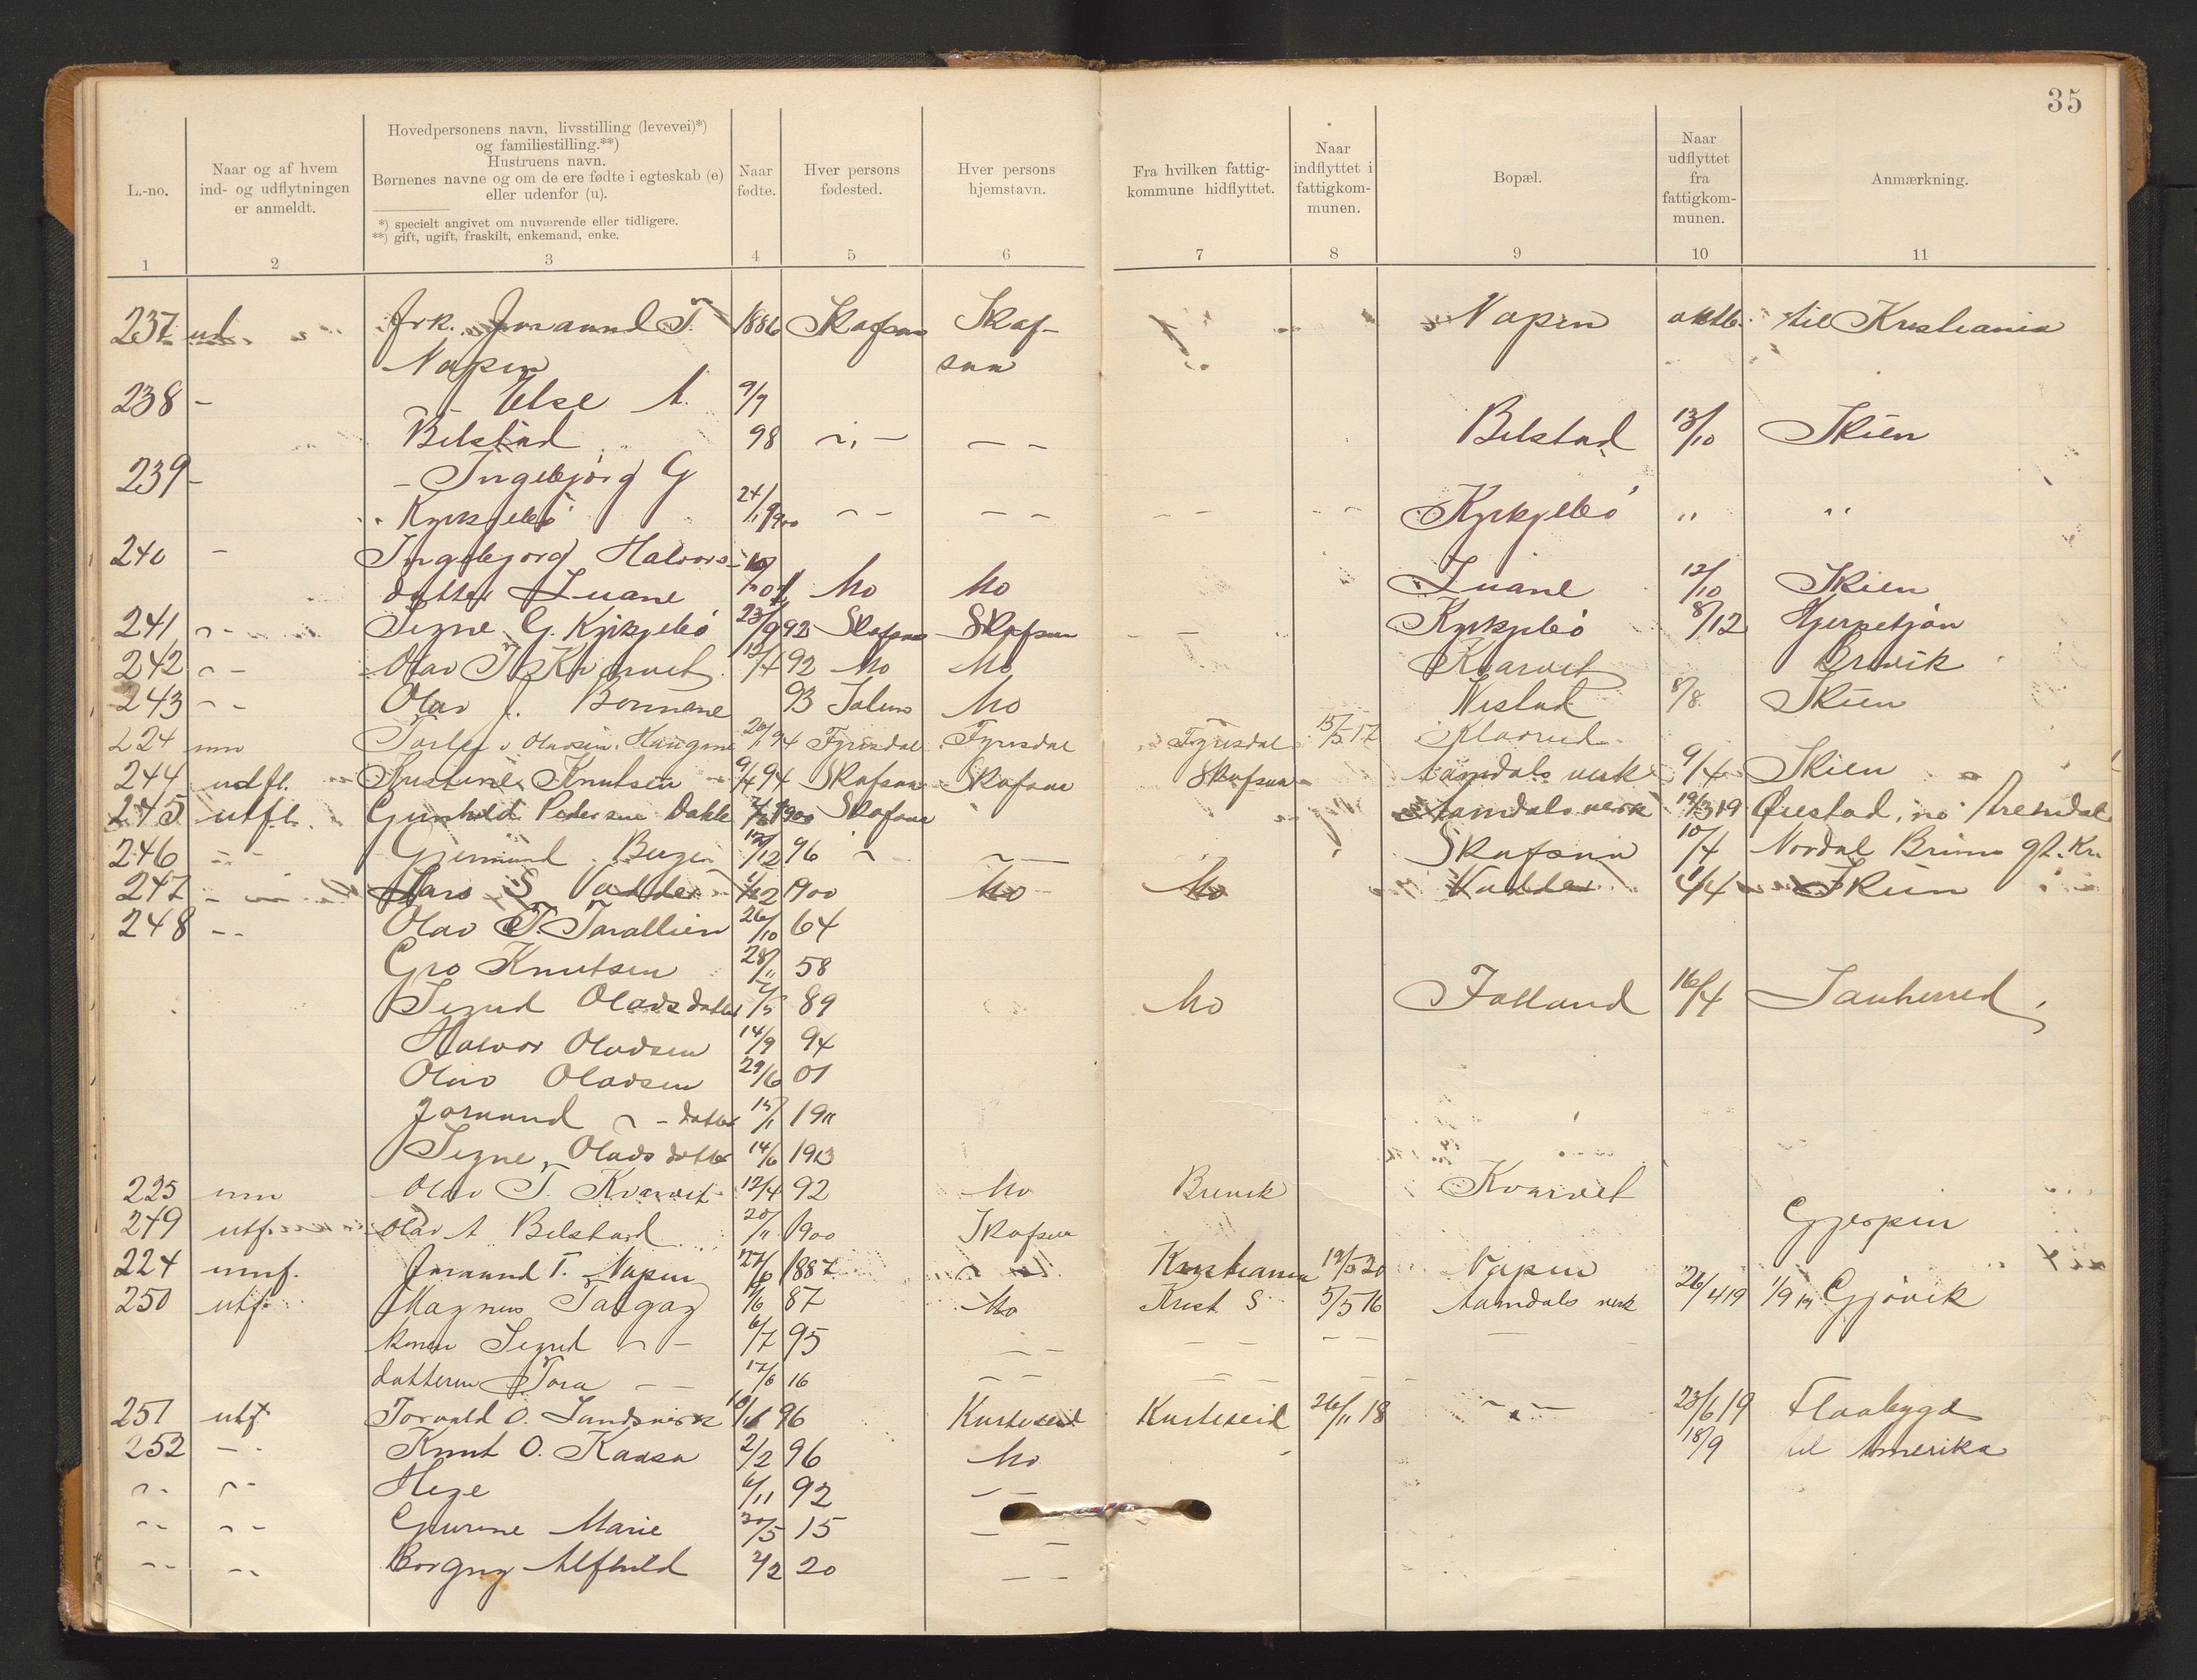 35
L.-no.
Naar og af hvem
ind- og udflytningen
er anmeldt.
Hovedpersonens navn, livsstilling (levevei)*)
og familiestilling.**)
Hustruens navn.
Børnenes navne og om de ere fødte i egteskab (e)
eller udenfor (u).
*) specielt angivet om nuværende eller tidligere.
**) gift, ugift, fraskilt, enkemand, enke.
Naar
fødte.
Hver persons
fødested.
Hver persons
hjemstavn.
Fra hvilken fattig-
kommune hidflyttet.
Naar
indflyttet i
fattigkom-
munen.
Bopæl.
Naar
udflyttet
fra
fattigkom-
munen.
Anmærkning.
1 2 3 4 5 6 7 8 9 10 11
237 ud. frk. Joraand T. 1886 Skafsaa Skaf- Napen oktb. til Kristiania
Napen saa
238 - - Else A. 9/7
Bilstad 98 - - - - Bilstad 13/10 Skien
239 - - Ingebjørg G 24/1
Kyrkjebö 1900 - - - - - - - - Kyrkjebö " "
240 - Ingebjørg Halvors-
datter Luane Mo Mo Luane 12/10 Skien
241 - - Signe G. Kyrkjebö 23/9 92 Skafsaa Skafsaa - - Kyrkjebö 8/12
242 - - Olav T. Kvarvet 12/4 92 Mo Mo Kvarvet Brevik
243 - - Olav J. 93 Mo Nistad 8/8 Skien
224 inn Olavsen Haugene 20/1 94 Fyrisdal Fyrisdal Fyrisdal 15/5 17
244 udfl. Knutsen 9/4 94 Skafsaa Skafsaa Skafsaa Aamdals verk 9/4 Skien
245 utfl. Gunhild Dahle 1900 Skafsaa Aamdals verk 19/3 19 Øiestad, Arendal
246 - - 12/12 96 - - - Skafsaa 10/4 Nordal Bruns gt. Kr.
247 - Lars S Vadder 1900 Mo Mo Vadder 4/4 Skien
248 - - Olav T. 26/10 64
Gro Knutsen 28/11 58
Sigrid Olavsdatter 89 Mo Falland 16/4 Sauherred
Halvor Olavsen 14/9 94
Olav Olavsen 29/6 01
Joraand - - datter 15/1 1911
Signe Olavsdatter 14/6 1913
225 inn Olav T. Kvarvet 12/4 92 Mo Brevik Kvarvet
249 utf. Olav A Bilstad 20/11 1900 Skafsaa Gjerpen
224 innf. Joraand T. Napen 27/6 1887 - - Kristiania 19/5 20 Napen
250 utf. Magnus 87 Mo Krist S 5/5 16 Aamdals verk 26/4 19 1/9 19 Gjövik
konen Sigrid - - 6/7 95 - - - - - - -
datteren Tora - - 17/6 16 - - - - - -
251 utf. Torvald O. Landsverk 96 Kviteseid Kviteseid 26/11 18 - - 23/6 19 Flaabygd
252 - - Knut O. Kaasa 2/2 96 Mo 18/9 til Amerika
- - - - Hege 6/11 92 - -
- - - - Gurine Marie 30/5 15 - -
- - - - Borgny Alfhild 2/2 20 - -